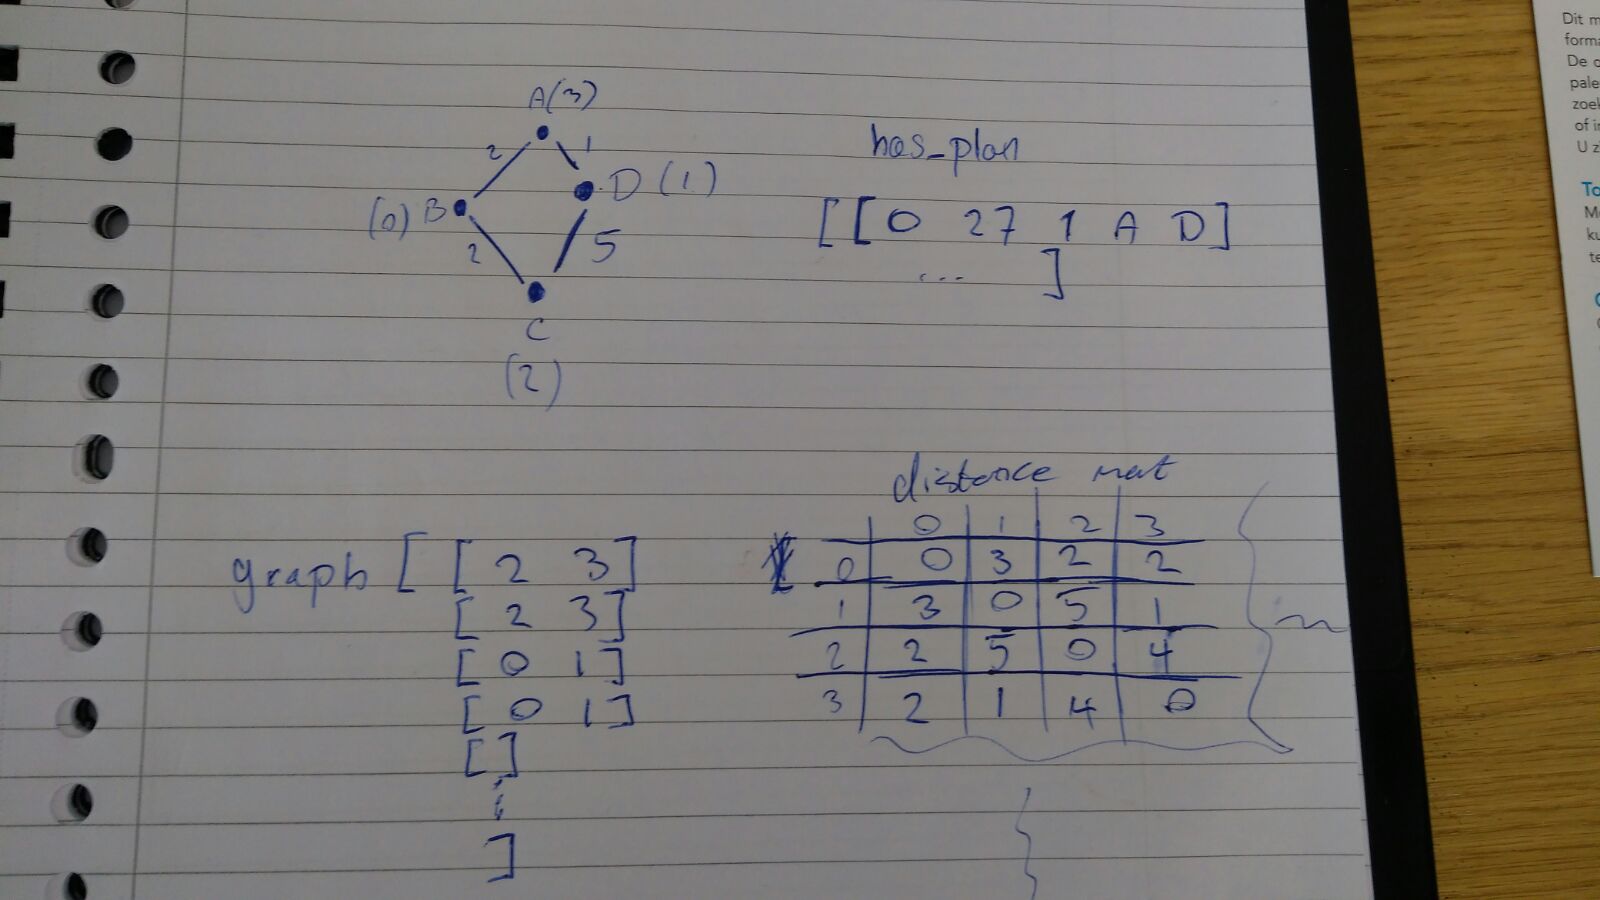 A(3)
2 1
(0) B D (1)
2 5
C
(2)
has_plan
[[0 27 1 A D]
... ]
graph [ [ 2 3]
[ 2 3]
[ 0 1]
[ 0 1]
[ ]
]
distance mat
0 1 2 3
0 0 3 2 2
1 3 0 5 1
2 2 5 0 4
3 2 1 4 0
Dit m
forma
De o
pale
zoek
of in
U z
To
Me
ku
te